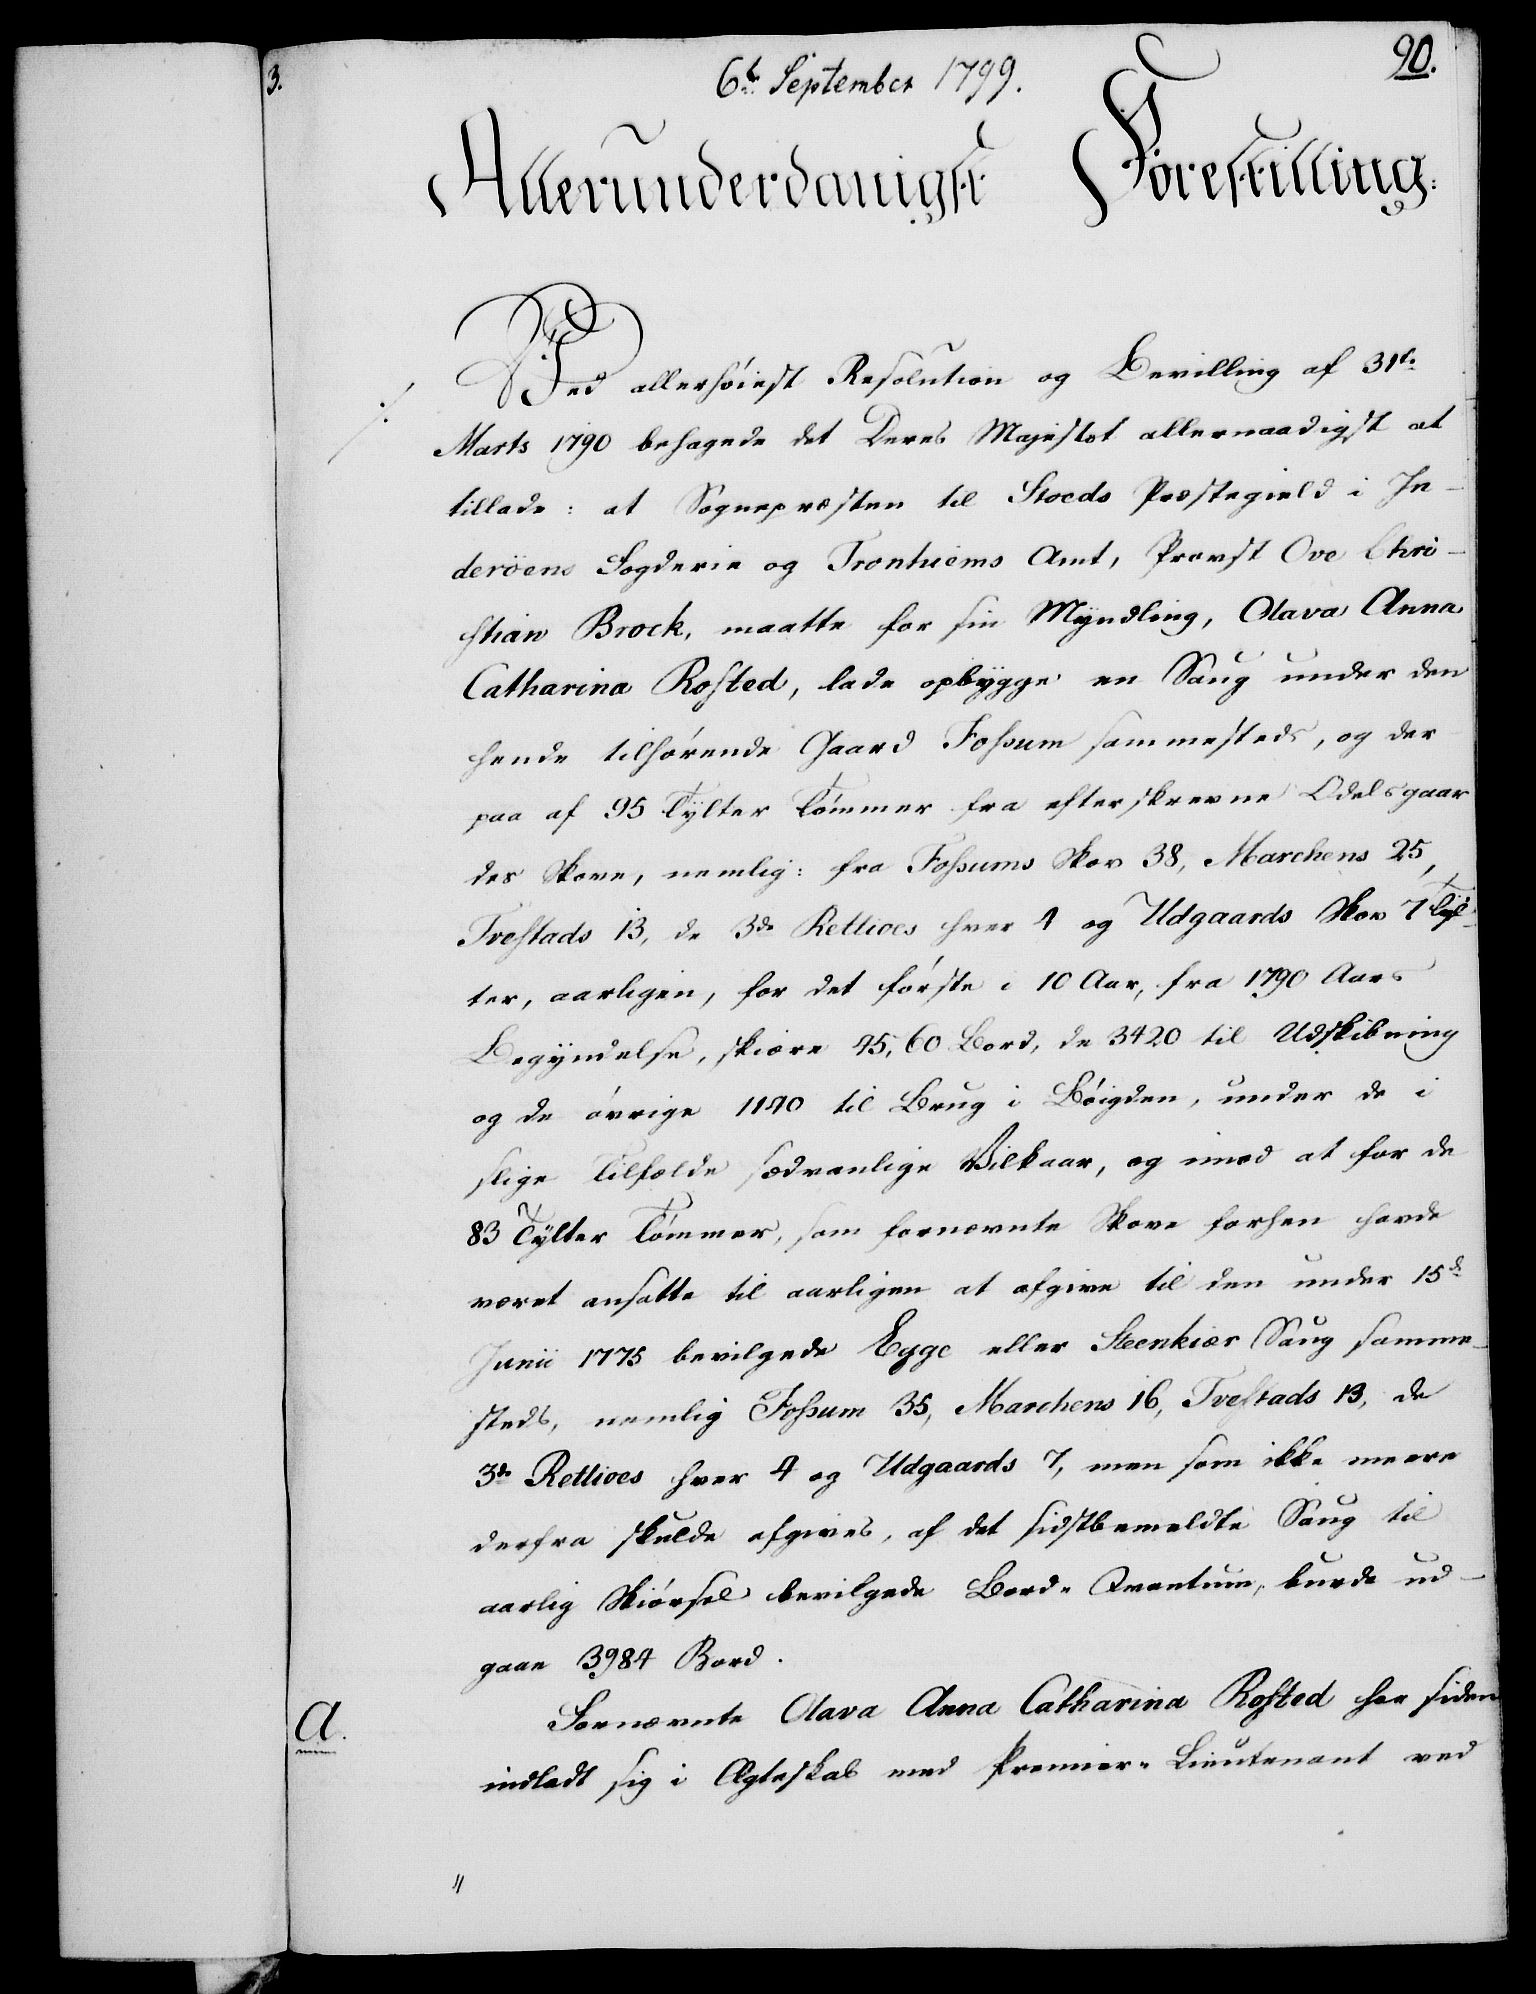 3.
6t. September 1799.
90.
Allerunderdanigst Forestilling:
Ved allerhöiest Resolution og Bevilling af 31t.
Marts 1790 behagede det Deres Majestæt allernaadigst at
tillade: at Sognepræsten til Stoeds Præstegield i In-
deröens Fogderie og Tronhiems Amt, Provst Ove Chri-
stian Brock, maatte for sin Myndling, Olava Anna
Catharina Rosted, lade opbygge en Saug under den
hende tilhörende Gaard Fossum sammesteds, og der
paa af 95 Tylter Tömmer fra efterskrevne Odelsgaar
des Skove, nemlig: fra Fossums Skov 38, Marchens 25,
Tvestads 13, de 3de Rettioes hver 4 og Udgaards Skov 7 Tyl-
ter, aarligen, for det förste i 10 Aar, fra 1790 Aars
Begyndelse, skiære 45,60 Bord, de 3420 til Udskibning
og de övrige 1140 til Brug i Böigden, under de i
slige Tilfælde sædvanlige Vilkaar, og imod at for de
83 Tylter Tömmer, som fornævnte Skove forhen havde
været ansatte til aarligen at afgive til den under 15d
Junii 1775 bevilgede Egge eller Steenkiær Saug samme-
steds, nemlig Fossum 35, Marchens 16, Tvestads 13, de
3de Rettioes hver 4 og Udgaards 7, men som ikke meere
derfra skulde afgives, af det sidstbemeldte Saug til
aarlig Skiörsel bevilgede Bord-Qvantum, burde ud-
gaae 3984 Bord.
A.
Fornævnte Olava Anna Catharina Rosted har siden
indladt sig i Ægteskab med Premier-Lieutenant ved